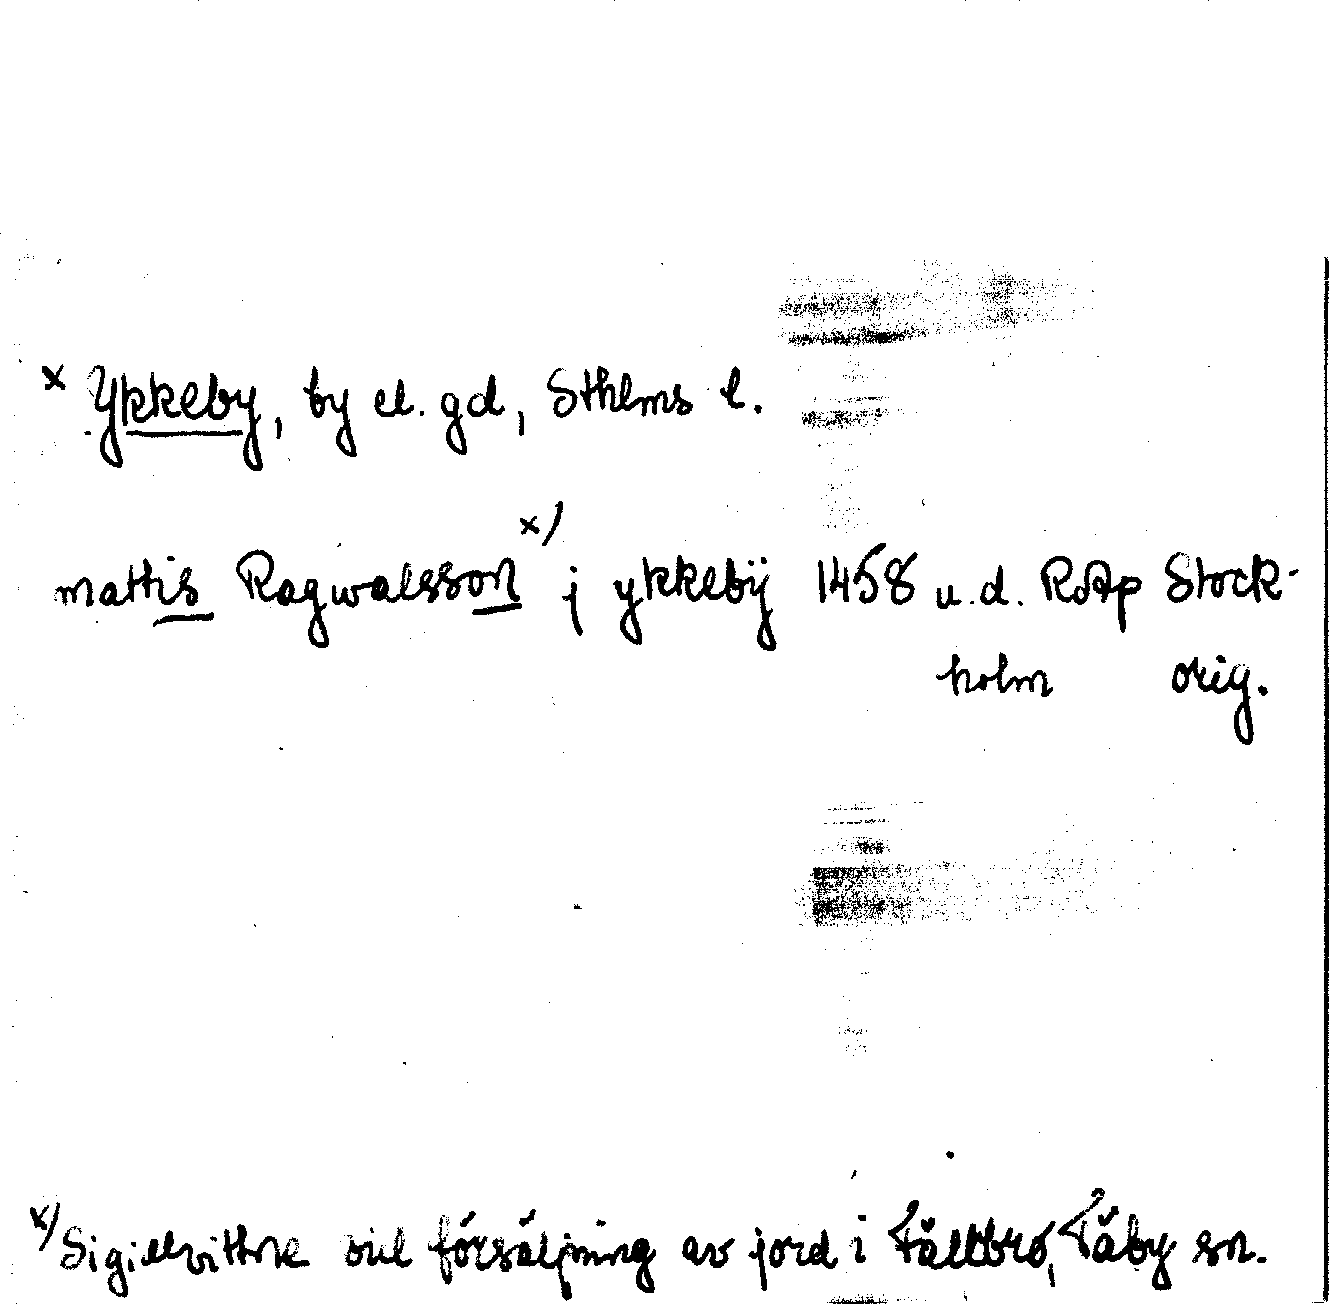 x Ykkeby, by el. gd, Sthlms l.
mattis Ragwalsson x) j ykkebÿ 1458 u.d. RAp Stock-
holm orig.
x) Sigillvittne vid försäljning av jord i Fällbro, Täby sn.